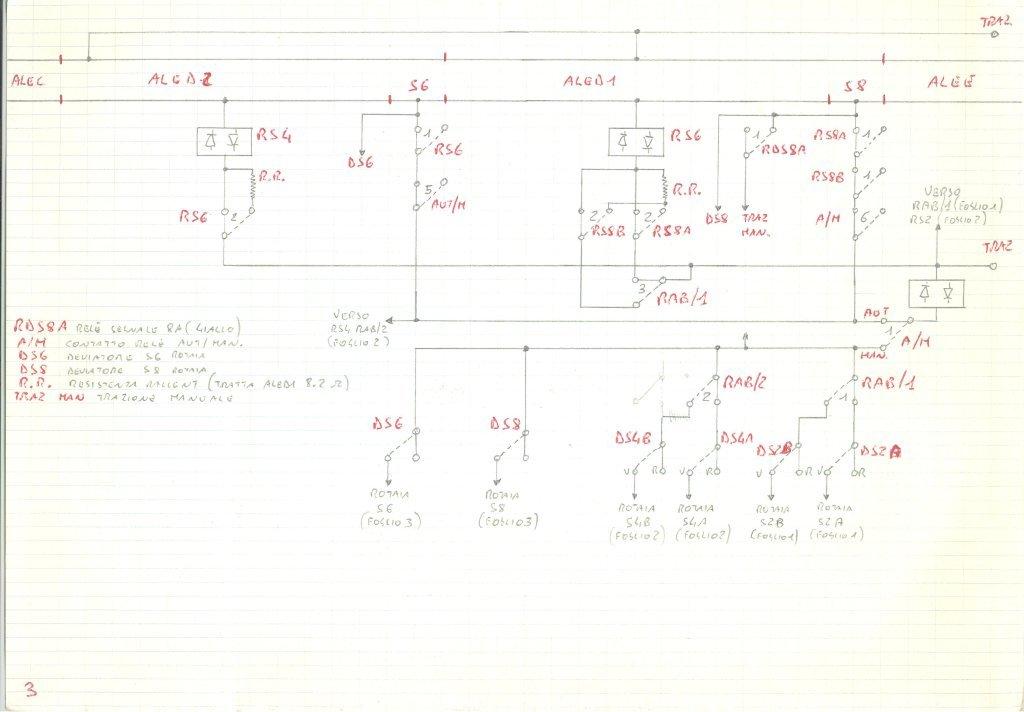 TRAZ
ALEC
ALED2
S6
ALED1
S8
ALEE
RS4
DS6
1
RS6
RS6
1
RDS8A
RS8A
1
R.R.
5
AUT/M
R.R.
RS8B
1
VERSO
RAB/1 (FOGLIO1)
RS2 (FOGLIO2)
RS6
2
2
RS8B
2
RS8A
DS8
TRAZ
MAN.
A/M
6
TRAZ
3
RAB/1
VERSO
RS4 RAB/2
(FOGLIO2)
AUT
1
A/M
MAN.
RDS8A RELÈ SEGNALE 8A (GIALLO)
A/M CONTATTO RELÈ AUT/MAN.
DS6 DEVIATORE S6 ROTAIA
DS8 DEVIATORE S8 ROTAIA
R.R. RESISTENZA RALLENT (TRATTA ALED1 8.2 Ω)
TRAZ MAN TRAZIONE MANUALE
RAB/2
2
RAB/1
1
DS6
DS8
DS4B
DS4A
DS2B
DS2A
V R
V R
V R
V R
ROTAIA
S6
(FOGLIO3)
ROTAIA
S8
(FOGLIO3)
ROTAIA
S4B
(FOGLIO2)
ROTAIA
S4A
(FOGLIO2)
ROTAIA
S2B
(FOGLIO1)
ROTAIA
S2A
(FOGLIO1)
3